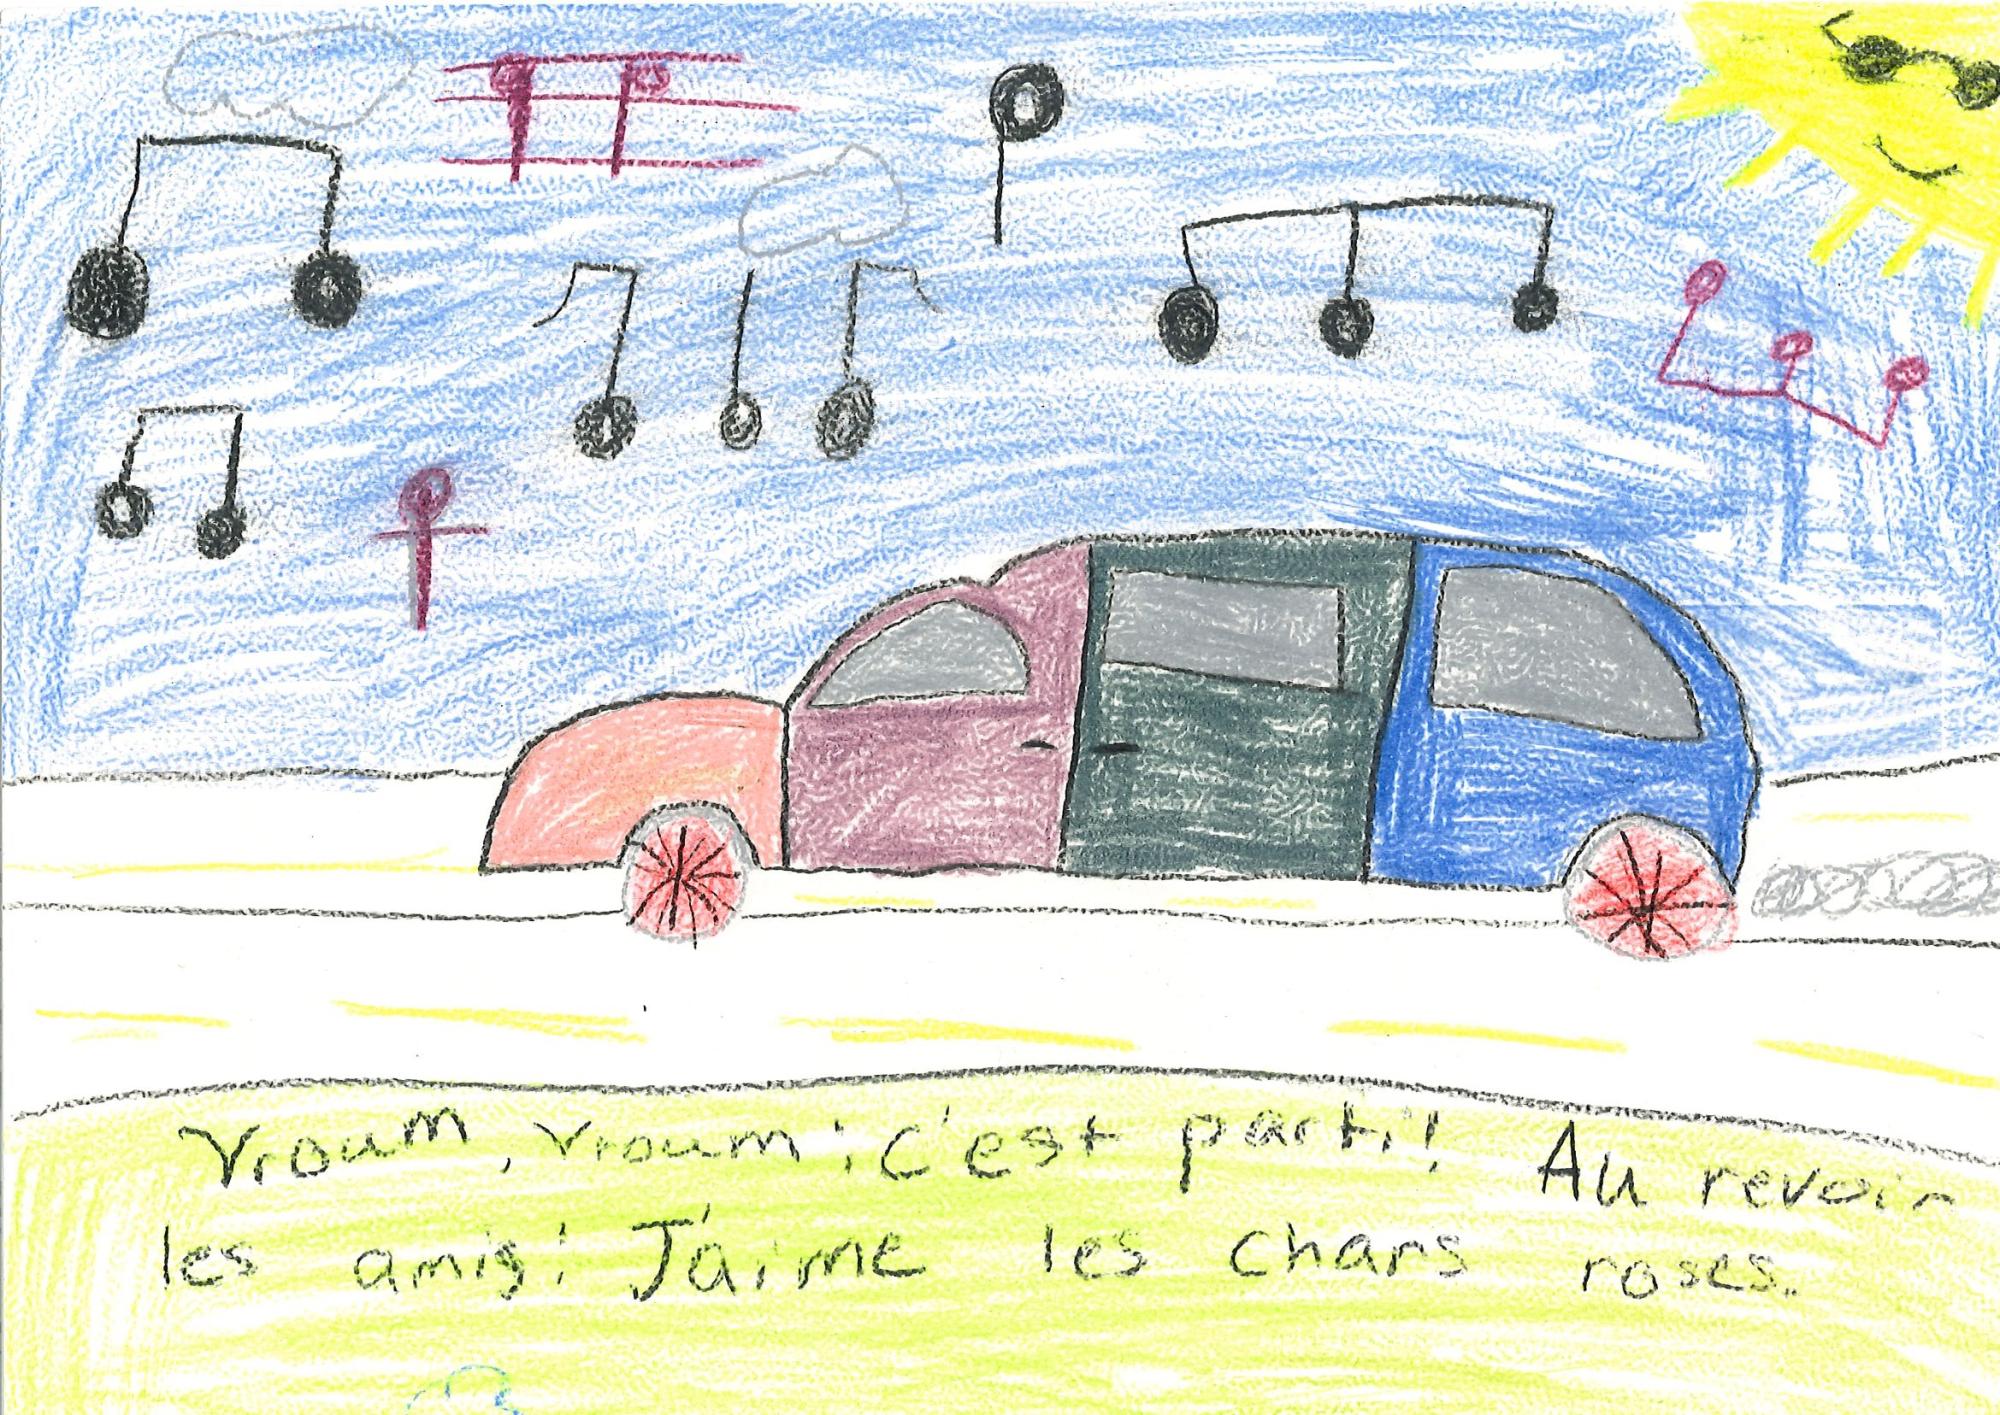 Vroum, vroum ! C'est parti ! Au revoir
les amis ! J'aime les chars roses.